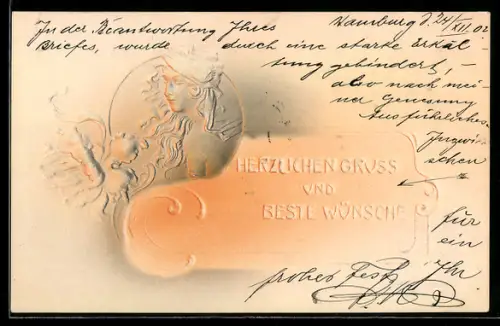 Hamburg d. 24/XII. 02
In der Beantwortung Ihres
Briefes, wurde durch eine starke Erkäl-
tung gehindert, –
also nach mei-
ner Genesung
Ausführliches.
Inzwi-
schen
HERZLICHEN GRUSS
UND
BESTE WÜNSCHE
für
ein
frohes Fest, Ihr